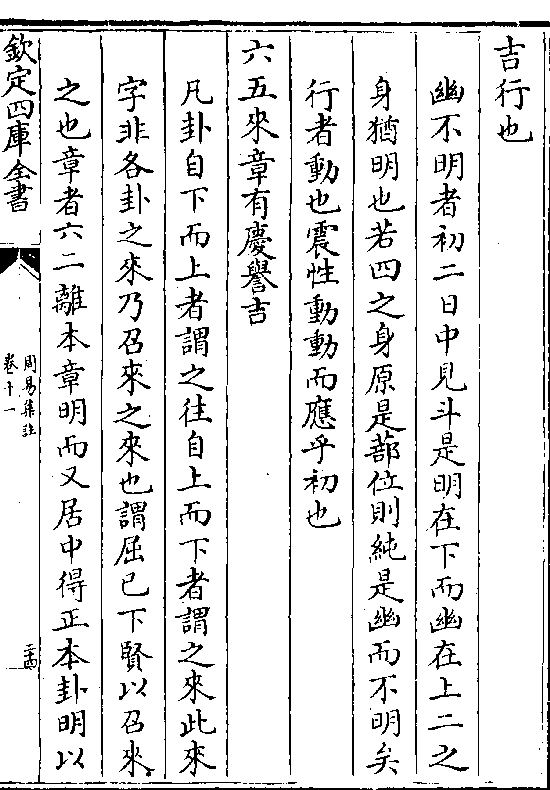 吉行也
幽不明者初二日中見斗是明在下而幽在上二之
身猶明也若四之身原是蔀位則純是幽而不明矣
行者動也震性動動而應乎初也
六五來章有慶譽吉
凡卦自下而上者謂之往自上而下者謂之來此來
字非各卦之來乃召來之來也謂屈己下賢以召來
之也章者六二離本章明而又居中得正本卦明以
欽定四庫全書
周易集註
卷十一
二十四